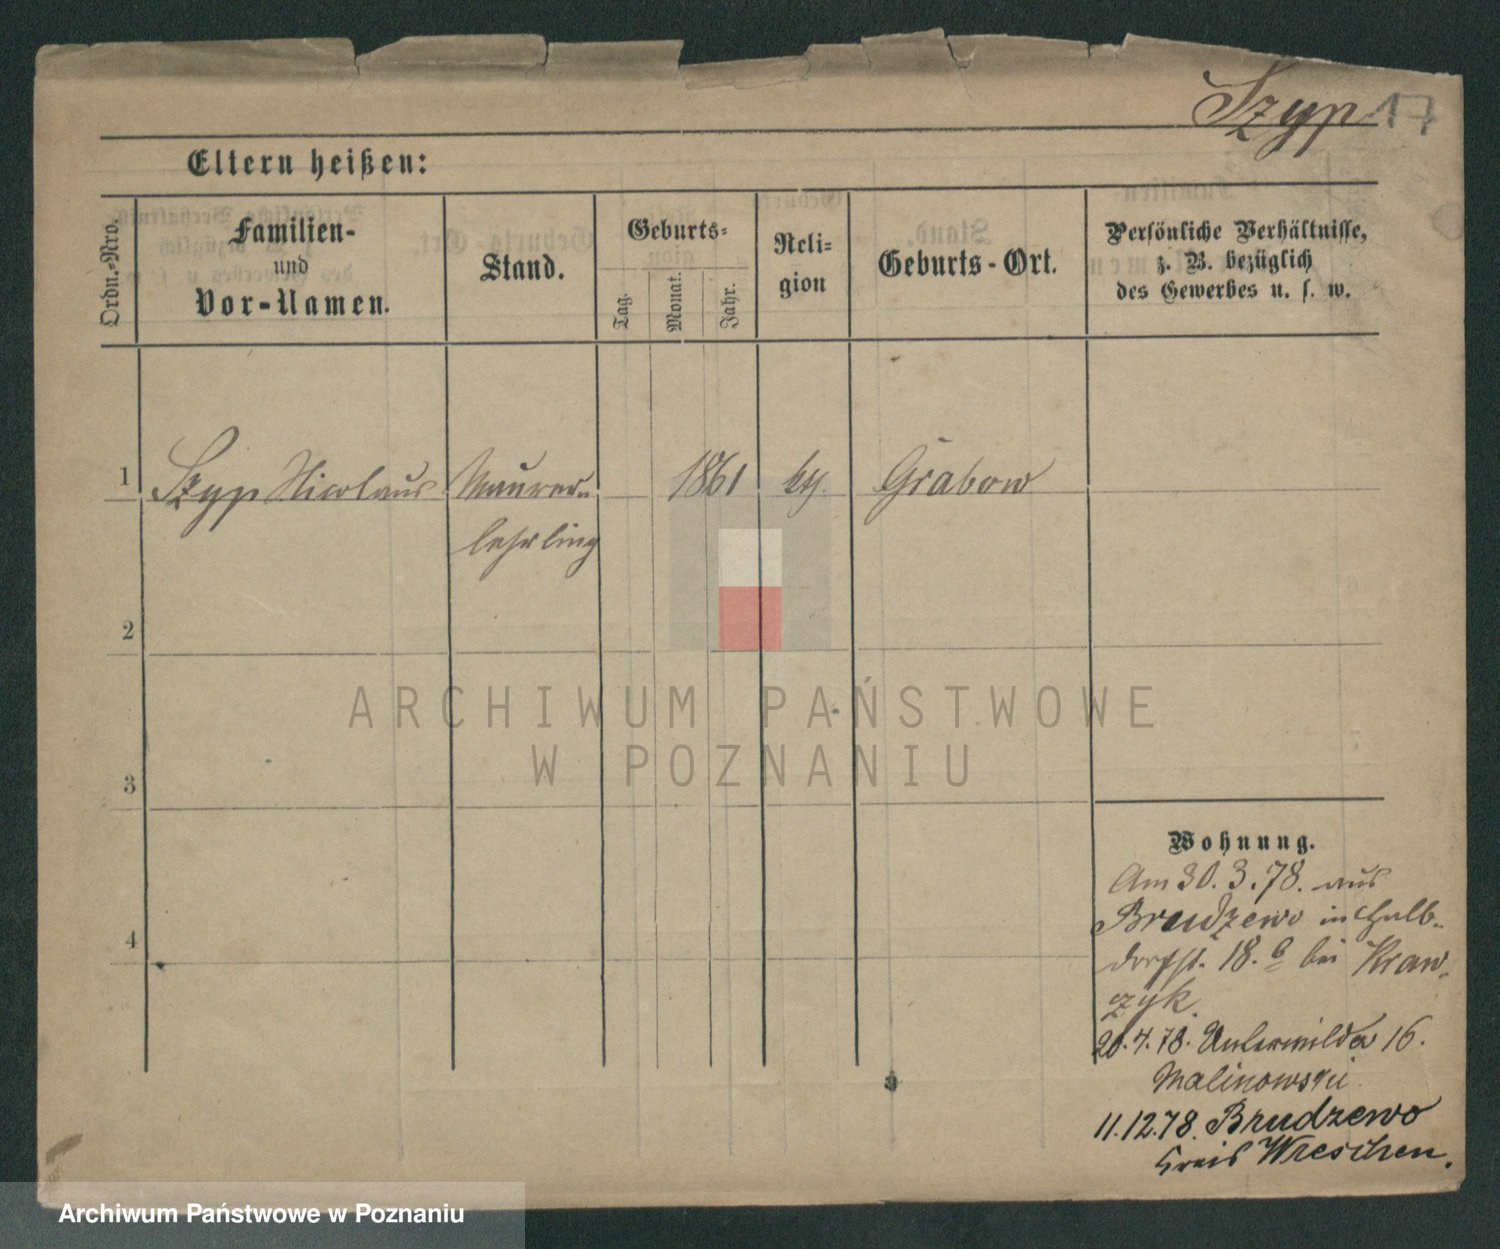 Szyp 17
Eltern heißen:
Ordn.-Nro.
Familien-
und
Vor-Namen.
Stand.
Geburts-
Tag.
Monat.
Jahr.
Reli-
gion
Geburts-Ort.
Persönliche Verhältnisse,
z. B. bezüglich
des Gewerbes u. s. w.
1 Szyp Nicolaus Maurer- 1861 kth. Grabow
lehrling
2
3
4
ARCHIWUM PAŃSTWOWE
W POZNANIU
Wohnung.
Am 30.3.78. aus
Brudzewo in Halb-
dorfst. 18.b bei Kraw-
czyk.
20.4.78. Unterwilda 16.
Malinowski
11.12.78. Brudzewo
Kreis Wreschen.
Archiwum Państwowe w Poznaniu